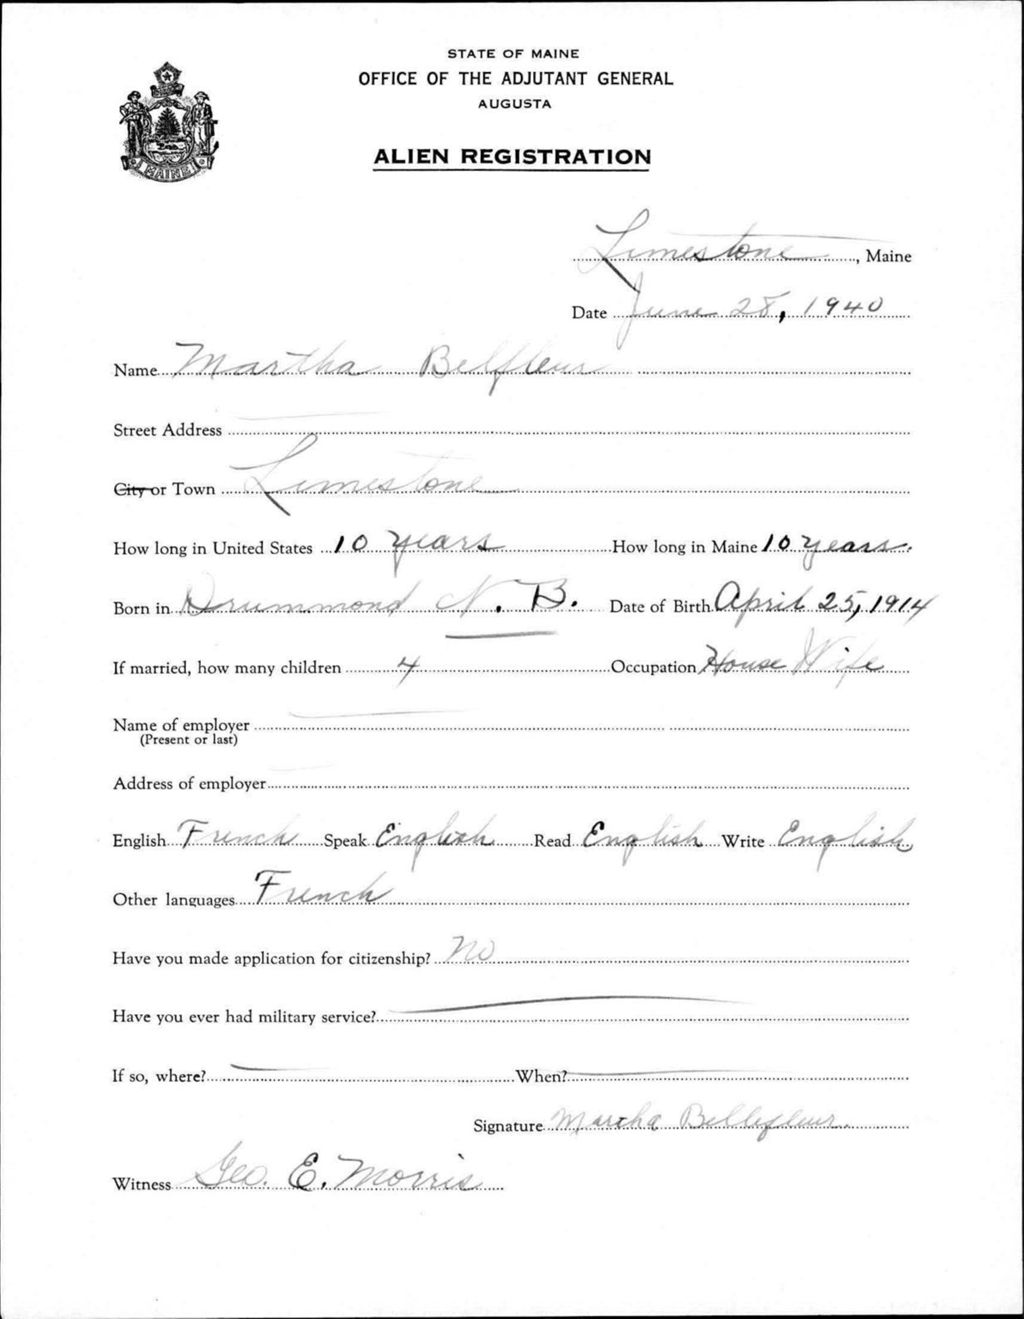 STATE OF MAINE
OFFICE OF THE ADJUTANT GENERAL
AUGUSTA
ALIEN REGISTRATION
MAINE
Limestone, Maine
Date June 28, 1940
Name Martha Belfleur
Street Address
City or Town Limestone
How long in United States 10 years How long in Maine 10 years.
Born in Drummond N. B. Date of Birth April 25, 1914
If married, how many children 4 Occupation House Wife
Name of employer
(Present or last)
Address of employer
English French Speak English Read English Write English
Other languages French
Have you made application for citizenship? No
Have you ever had military service?
If so, where? When?
Signature Martha Bellefleur
Witness Geo. E. Morris